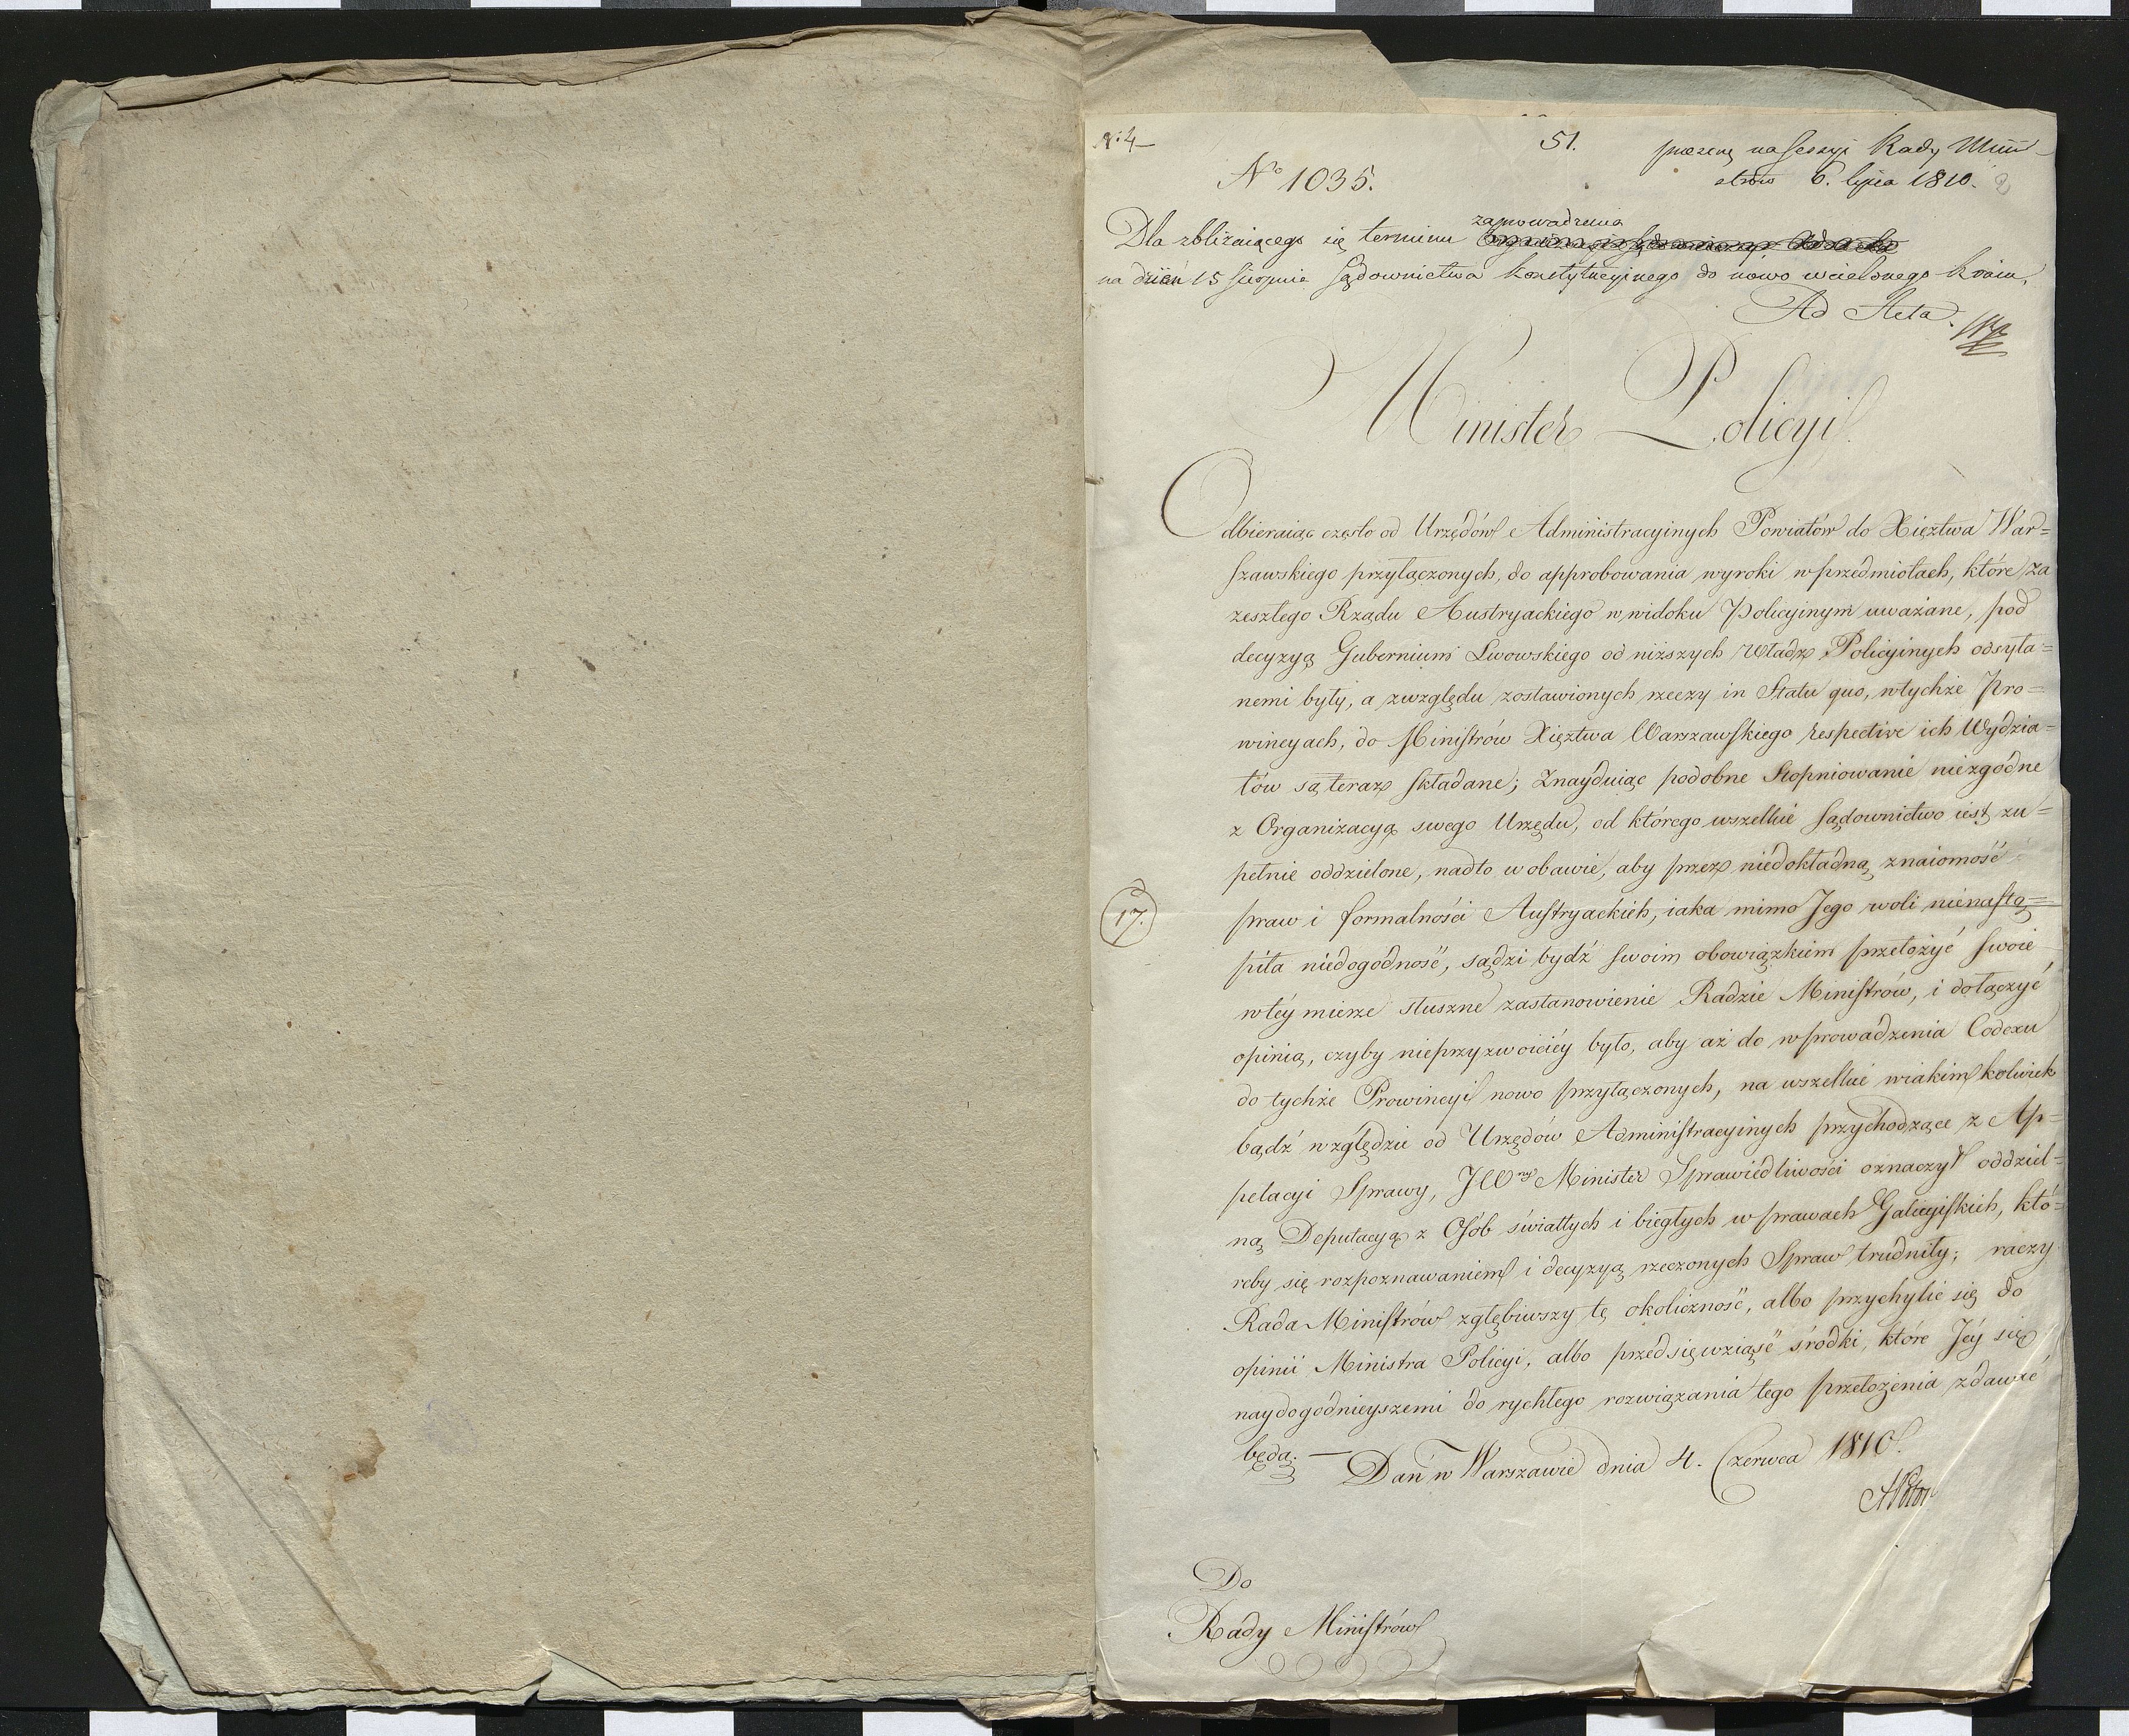 N: 4
51.
prezen. na Sessyi Rady Mini-
strów 6. lipca 1810.
N° 1035.
zaprowadzenia
Dla zbliżaiącego się terminu
na dzień 15 Sierpnia Sądownictwa konstytucyjnego do nowo wcielonego kraiu,
Ad Acta.
Minister Policyi
Odbieraiąc często od Urzędów Administracyinych Powiatów do Xięztwa War=
szawskiego przyłączonych, do approbowania wyroki w przedmiotach, które za
zeszłego Rządu Austryackiego w widoku Policyinym uważane, pod
decyzyą Gubernium Lwowskiego od niższych Władz Policyinych odsyła=
nemi były, a zwzględu zostawionych rzeczy in Statu quo, wtychże Pro=
wincyach, do Ministrów Xięztwa Warszawskiego respective ich Wydzia=
łów są teraz składane; Znayduiąc podobne Stopniowanie niezgodne
z Organizacyą swego Urzędu, od którego wszelkie Sądownictwo iest zu=
pełnie oddzielone, nadto w obawie, aby przez niedokładną znaiomość
praw i formalności Austryackich, iaka mimo Jego woli nienastą=
piła niedogodność, sądzi bydź swoim obowiązkiem przełożyć swoie
wtéy mierze słuszne zastanowienie Radzie Ministrów, i dołączyć
opinią, czyby nieprzyzwoiciéy było, aby aż do wprowadzenia Codexu
do tychże Prowincyi nowo przyłączonych, na wszelkie wiakim kolwiek
bądź względzie od Urzędów Administracyinych przychodzące z Ap=
pelacyi Sprawy, JWny Minister Sprawiedliwości oznaczył oddziel=
ną Deputacyą z Osób światłych i biegłych w prawach Galicyiskich, któ=
reby się rozpoznawaniem i decyzyą rzeczonych Spraw trudniły; raczy
Rada Ministrów zgłębiwszy tę okoliczność, albo przychylić się do
opinii Ministra Policyi, albo przedsięwziąść środki, które Jéy się
naydogodnieyszemi do rychłego rozwiązania tego przełożenia zdawać
będą. — Dań w Warszawie dnia 4. Czerwca 1810.
17.
Do
Rady Ministrów